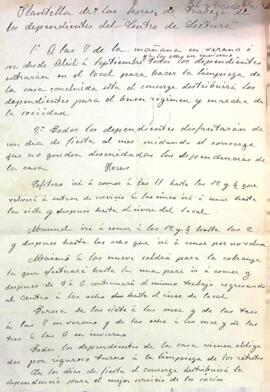 Plantilla de las horas de trabajo de
los dependientes del Centro de Lectura
1º A las 7 de la mañana en verano ó
sea desde Abril á Septiembre todos los dependientes
entrarán en el local para hacer la limpieza de
la casa concluida esta el conserge distribuirá los
dependientes para el buen régimen y marcha de
la sociedad.
2º Todos los dependientes disfrutarán de
un dia de fiesta al mes cuidando el conserge
que no queden descuidadas las dependencias de
la casa.
Horas
irá á comer á las 11 hasta las 12 y ½ que
volverá á entrar de servicio
las siete y despues hasta el cierre del local.
Manuel irá á comer á las 12 y ½ hasta las 2
y despues hasta las ocho que irá á cenar por no volver
Máximo á las nueve saldrá para la cobranza
la que efectuará hasta la una para ir á comer y
despues de 3 á 6 continuará el mismo trabajo regresando
al Centro á las ocho hasta el cierre de local
Teresa de las siete á las once y de las tres
á las 7 en verano y de las ocho á las once y de las tres
á las 6 en invierno
Todos los dependientes de la casa vienen obligados
por riguroso turno á la limpieza de los retretes
En los dias de fiesta el conserge distribuirá la
dependencia para el mejor servicio de los socios